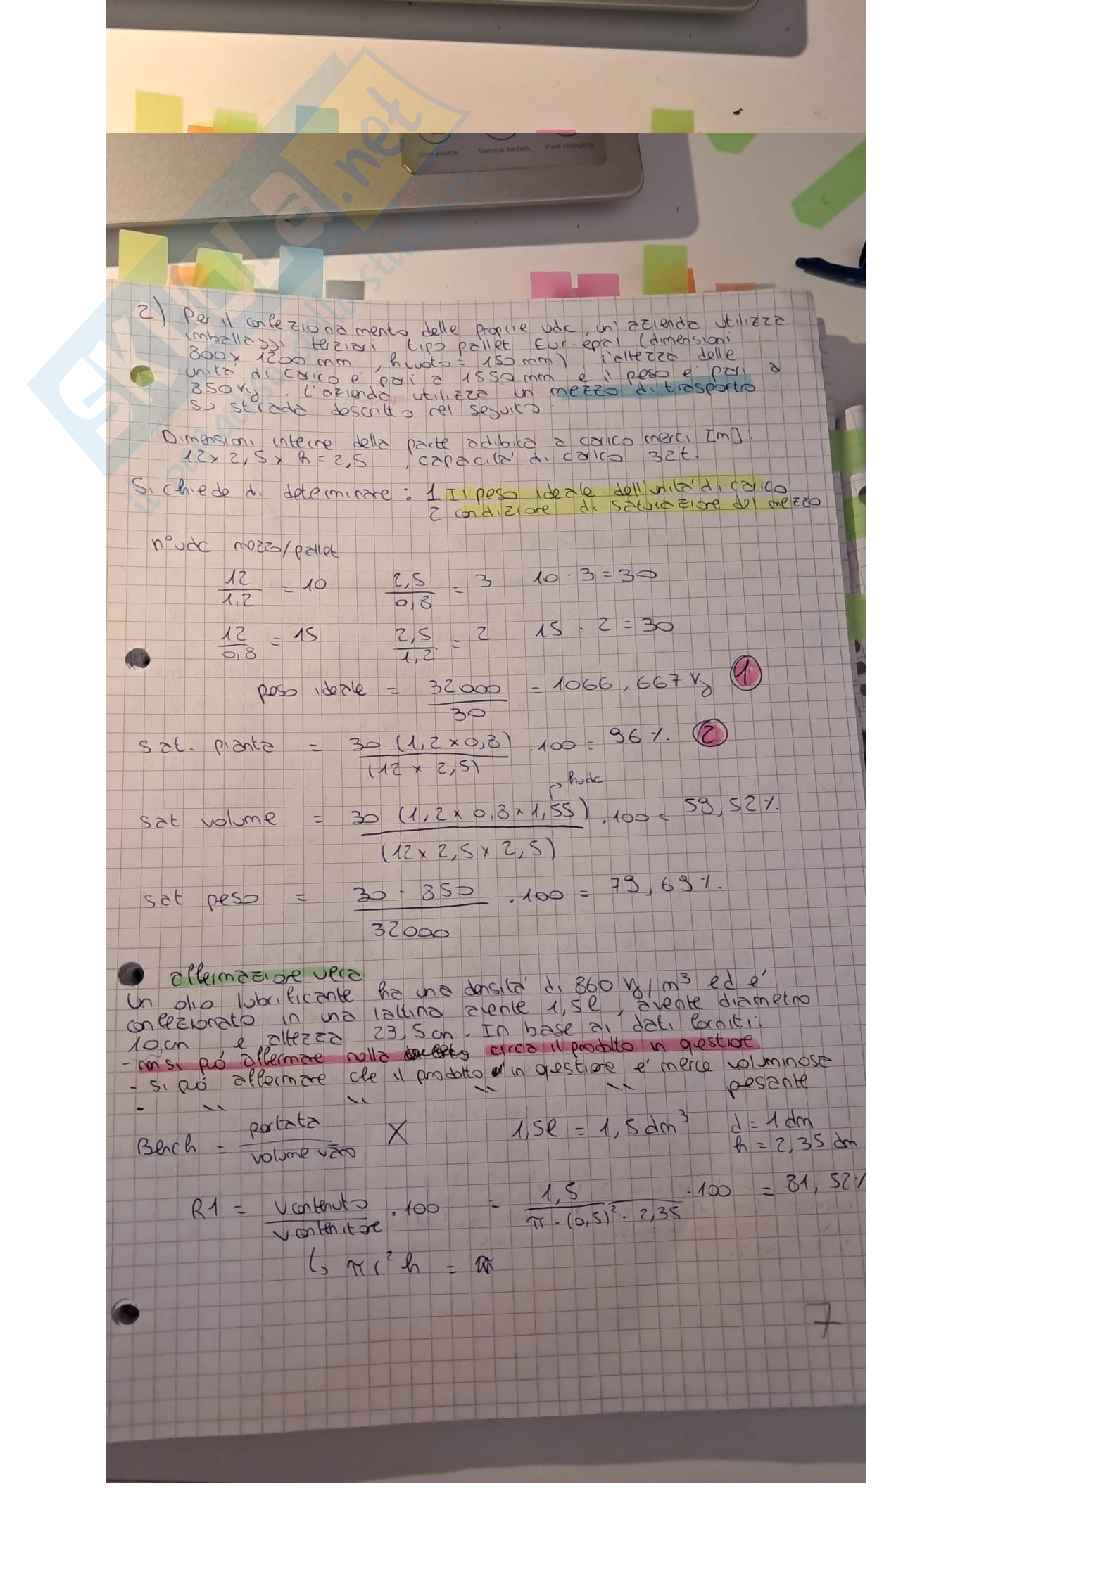 2) Per il confezionamento delle proprie udc, un'azienda utilizza
imballaggi terziari tipo pallet Eur epal (dimensioni
800x 1200 mm, h vuoto = 150 mm) l'altezza delle
unità di carico è pari a 1550 mm e i peso è pari a
850 kg. L'azienda utilizza un mezzo di trasporto
su strada descritto nel seguito.
Dimensioni interne della parte adibita a carico merci [m]
12 x 2,5 x h = 2,5 , capacità di carico 32t.
Si chiede di determinare: 1 Il peso ideale dell'unità di carico
2 condizione di saturazione del mezzo
n° udc mezzo/pallet
12/1,2 = 10 2,5/0,8 = 3 10 · 3 = 30
12/0,8 = 15 2,5/1,2 = 2 15 · 2 = 30
peso ideale = 32000/30 = 1066,667 kg 1
sat. pianta = 30 (1,2 x 0,8)/(12 x 2,5) · 100 = 96 %. 2
h udc
sat volume = 30 (1,2 x 0,8 x 1,55)/(12 x 2,5 x 2,5) · 100 = 59,52 %.
sat peso = 30 · 850/32000 · 100 = 79,69 %.
affermazione vera
Un olio lubrificante ha una densità di 860 kg/m³ ed è
confezionato in una lattina avente 1,5l, avente diametro
10cm e altezza 23,5cm. In base ai dati forniti:
- non si può affermare nulla circa il prodotto in questione
- si può affermare che il prodotto in questione è merce voluminosa
- " " " " pesante
Bench = portata/volume vano X 1,5l = 1,5 dm³ d = 1 dm
h = 2,35 dm
R1 = V contenuto/V contenitore · 100 = 1,5/π · (0,5)² · 2,35 · 100 = 81,52%
↳ π r² h =
7
SKUOLA.net